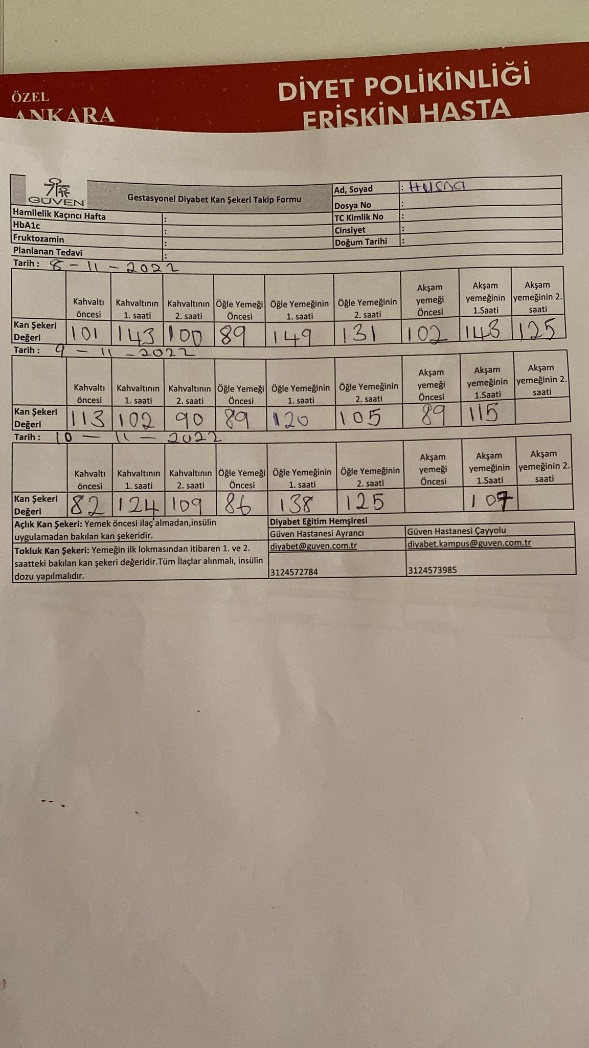 ÖZEL
ANKARA
DİYET POLİKİNLİĞİ
ERİŞKİN HASTA
GÜVEN
Gestasyonel Diyabet Kan Şekeri Takip Formu
Ad, Soyad :
Dosya No :
TC Kimlik No :
Cinsiyet :
Doğum Tarihi :
Hamilelik Kaçıncı Hafta :
HbA1c :
Fruktozamin :
Planlanan Tedavi :
Tarih : 8 - 11 - 2022
Kahvaltı öncesi Kahvaltının 1. saati Kahvaltının 2. saati Öğle Yemeği Öncesi Öğle Yemeğinin 1. saati Öğle Yemeğinin 2. saati Akşam yemeği Öncesi Akşam yemeğinin 1.Saati Akşam yemeğinin 2. saati
Kan Şekeri Değeri 101 143 100 89 149 131 102 143 125
Tarih : 9 - 11 - 2022
Kahvaltı öncesi Kahvaltının 1. saati Kahvaltının 2. saati Öğle Yemeği Öncesi Öğle Yemeğinin 1. saati Öğle Yemeğinin 2. saati Akşam yemeği Öncesi Akşam yemeğinin 1.Saati Akşam yemeğinin 2. saati
Kan Şekeri Değeri 113 102 90 89 120 105 89 115
Tarih : 10 - 11 - 2022
Kahvaltı öncesi Kahvaltının 1. saati Kahvaltının 2. saati Öğle Yemeği Öncesi Öğle Yemeğinin 1. saati Öğle Yemeğinin 2. saati Akşam yemeği Öncesi Akşam yemeğinin 1.Saati Akşam yemeğinin 2. saati
Kan Şekeri Değeri 82 124 109 86 138 125 107
Açlık Kan Şekeri: Yemek öncesi ilaç almadan,insülin
uygulamadan bakılan kan şekeridir.
Tokluk Kan Şekeri: Yemeğin ilk lokmasından itibaren 1. ve 2.
saatteki bakılan kan şekeri değeridir.Tüm İlaçlar alınmalı, insülin
dozu yapılmalıdır.
Diyabet Eğitim Hemşiresi
Güven Hastanesi Ayrancı
diyabet@guven.com.tr
3124572784
Güven Hastanesi Çayyolu
diyabet.kampus@guven.com.tr
3124573985